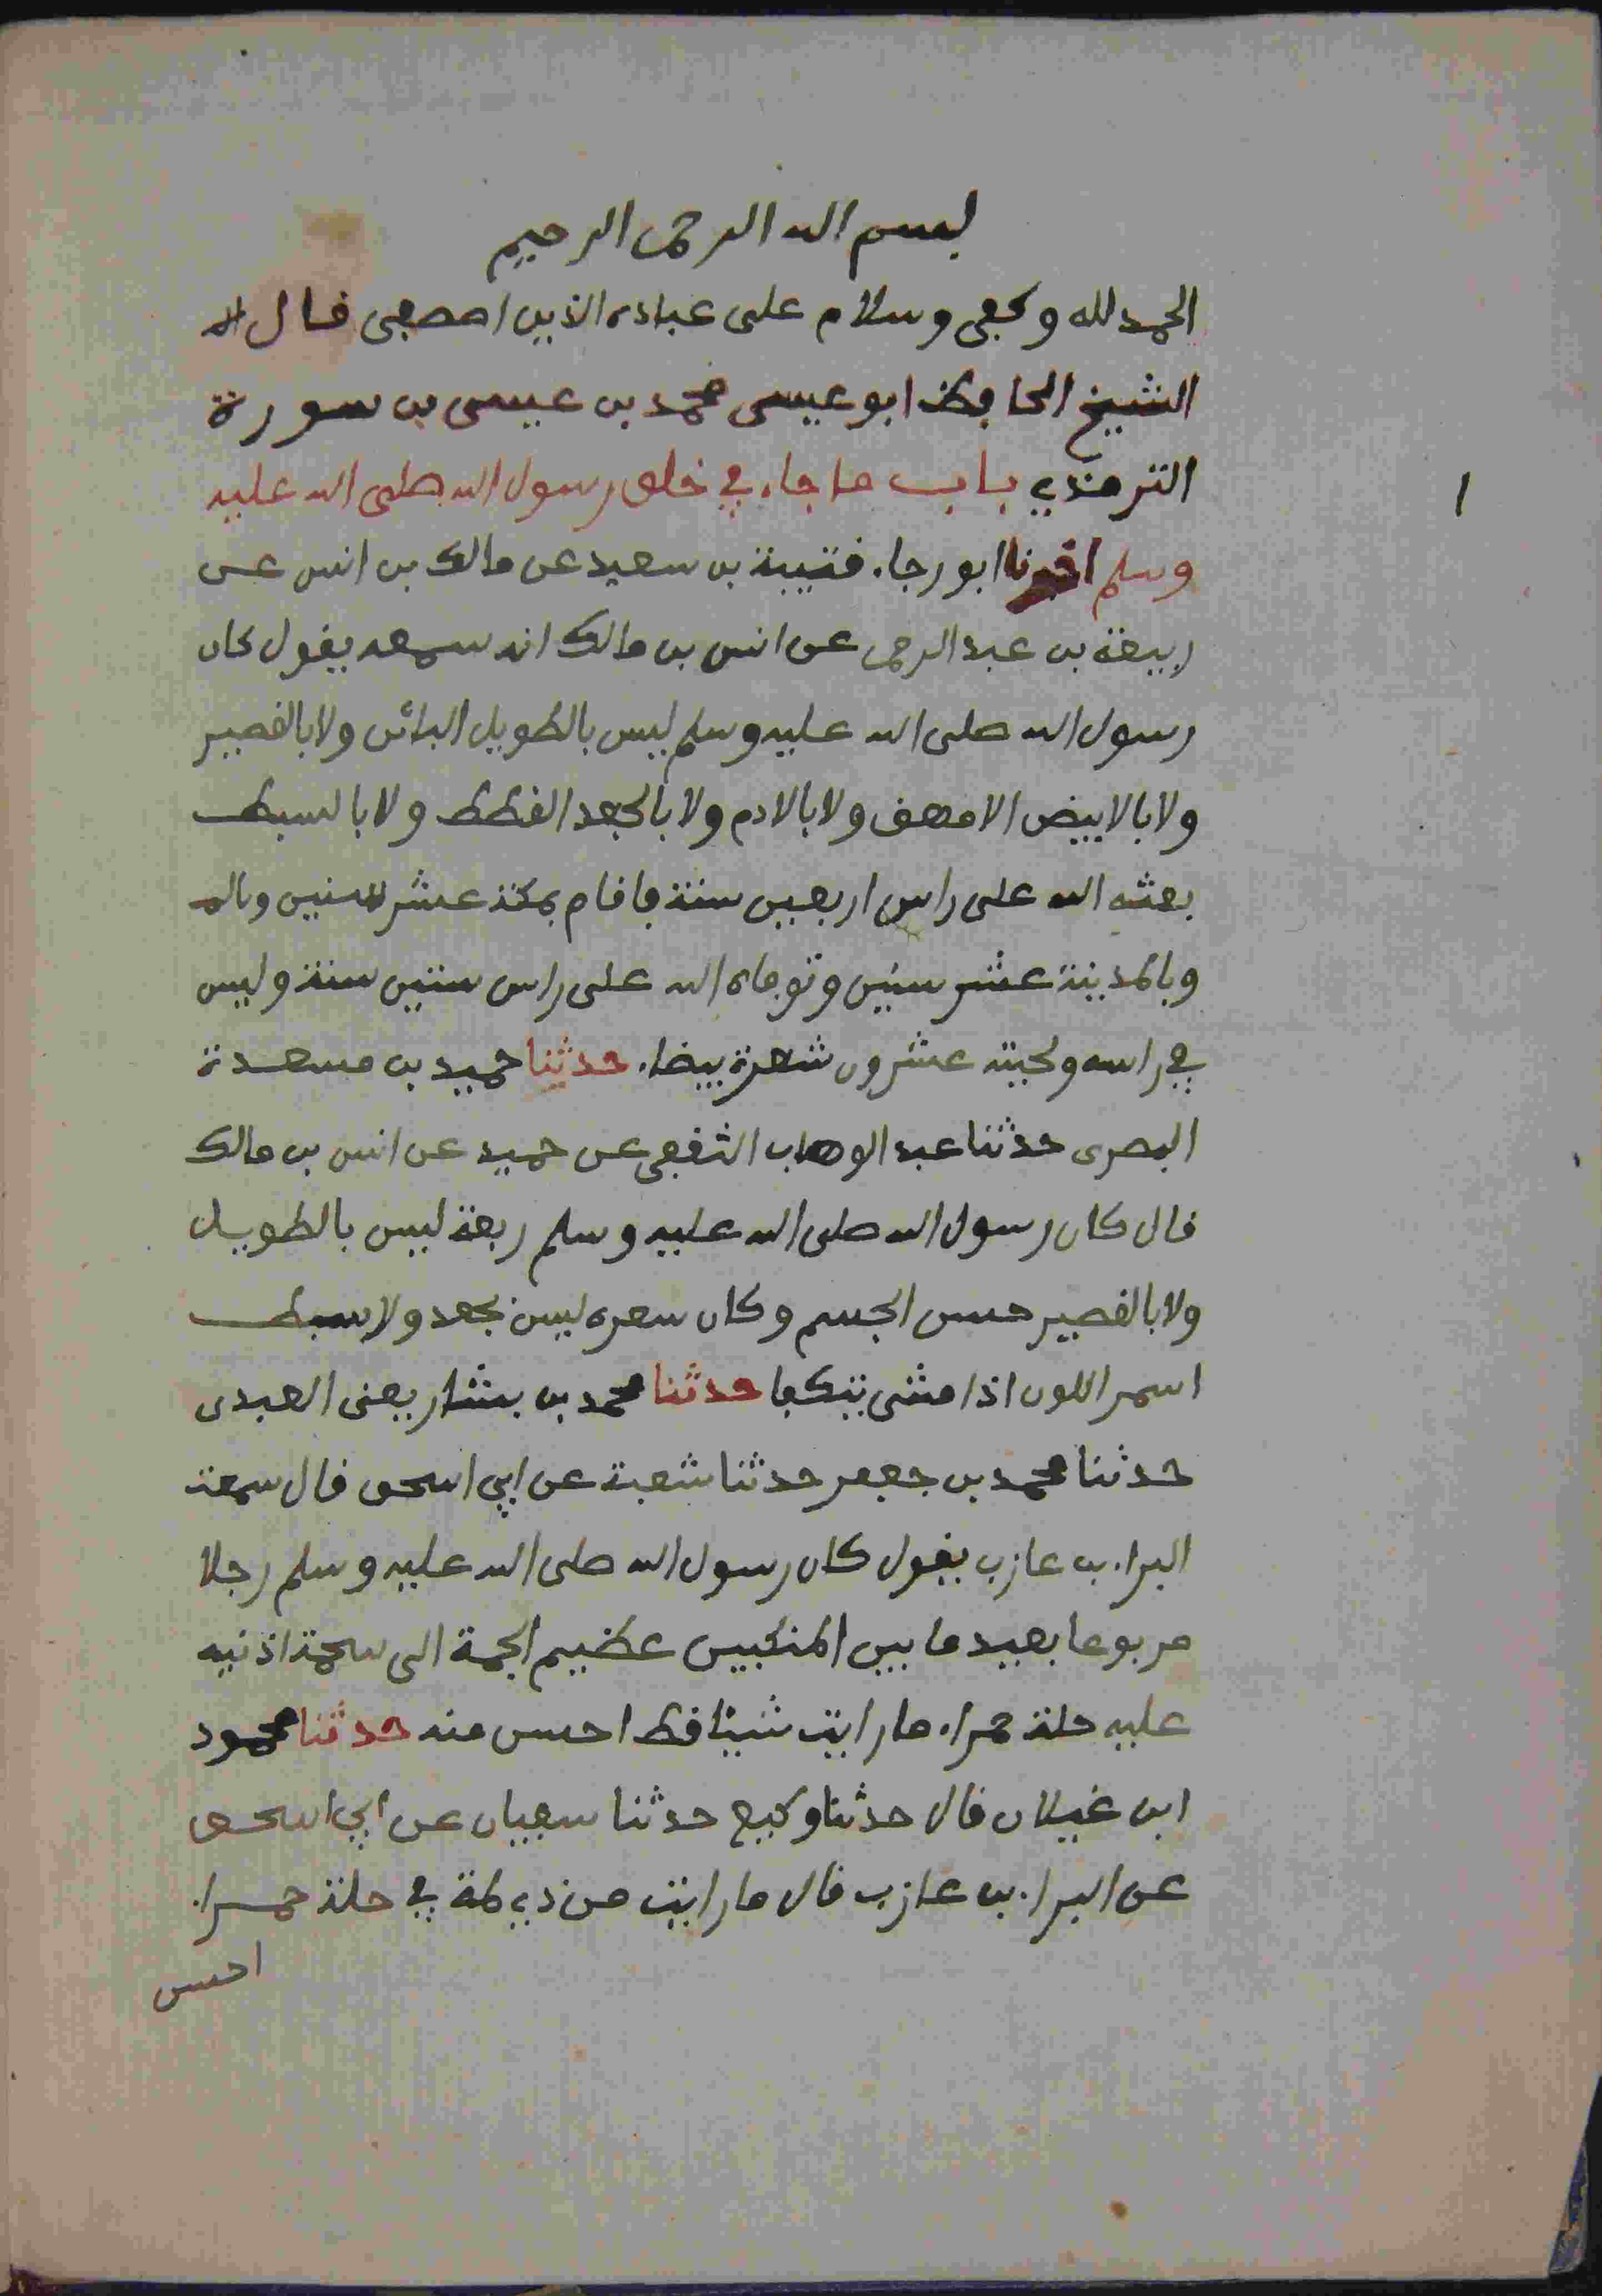 بسم الله الرحمن الرحيم
الحمد لله وكفى وسلام على عباده الذين اصطفى قال
الشيخ الحافظ ابو عيسى محمد بن عيسى بن سورة
الترمذي باب ما جاء في خلق رسول الله صلى الله عليه
وسلم اخبرنا ابو رجاء قتيبة بن سعيد عن مالك بن انس عن
ربيعة بن عبد الرحمن عن انس بن مالك انه سمعه يقول كان
رسول الله صلى الله عليه وسلم ليس بالطويل البائن ولا بالقصير
ولا بالابيض الامهق ولا بالادم ولا بالجعد القطط ولا بالسبط
بعثه الله على راس اربعين سنة فاقام بمكة عشر سنين وبالمـ
وبالمدينة عشر سنين وتوفاه الله على راس ستين سنة وليس
في راسه ولحيته عشرون شعرة بيضاء حدثنا حميد بن مسعدة
البصرى حدثنا عبد الوهاب الثقفي عن حميد عن انس بن مالك
قال كان رسول الله صلى الله عليه وسلم ربعة ليس بالطويل
ولا بالقصير حسن الجسم وكان شعره ليس بجعد ولا سبط
اسمر اللون اذا مشى يتكفا حدثنا محمد بن بشار يعنى العبدى
حدثنا محمد بن جعفر حدثنا شعبة عن ابي اسحق قال سمعت
البراء بن عازب يقول كان رسول الله صلى الله عليه وسلم رجلا
مربوعا بعيد ما بين المنكبين عظيم الجمة الى شحمة اذنيه
عليه حلة حمراء ما رايت شيئا قط احسن منه حدثنا محمود
ابن غيلان قال حدثنا وكيع حدثنا سفيان عن ابي اسحق
عن البراء بن عازب قال ما رايت من ذي لمة في حلة حمراء
احسن
١